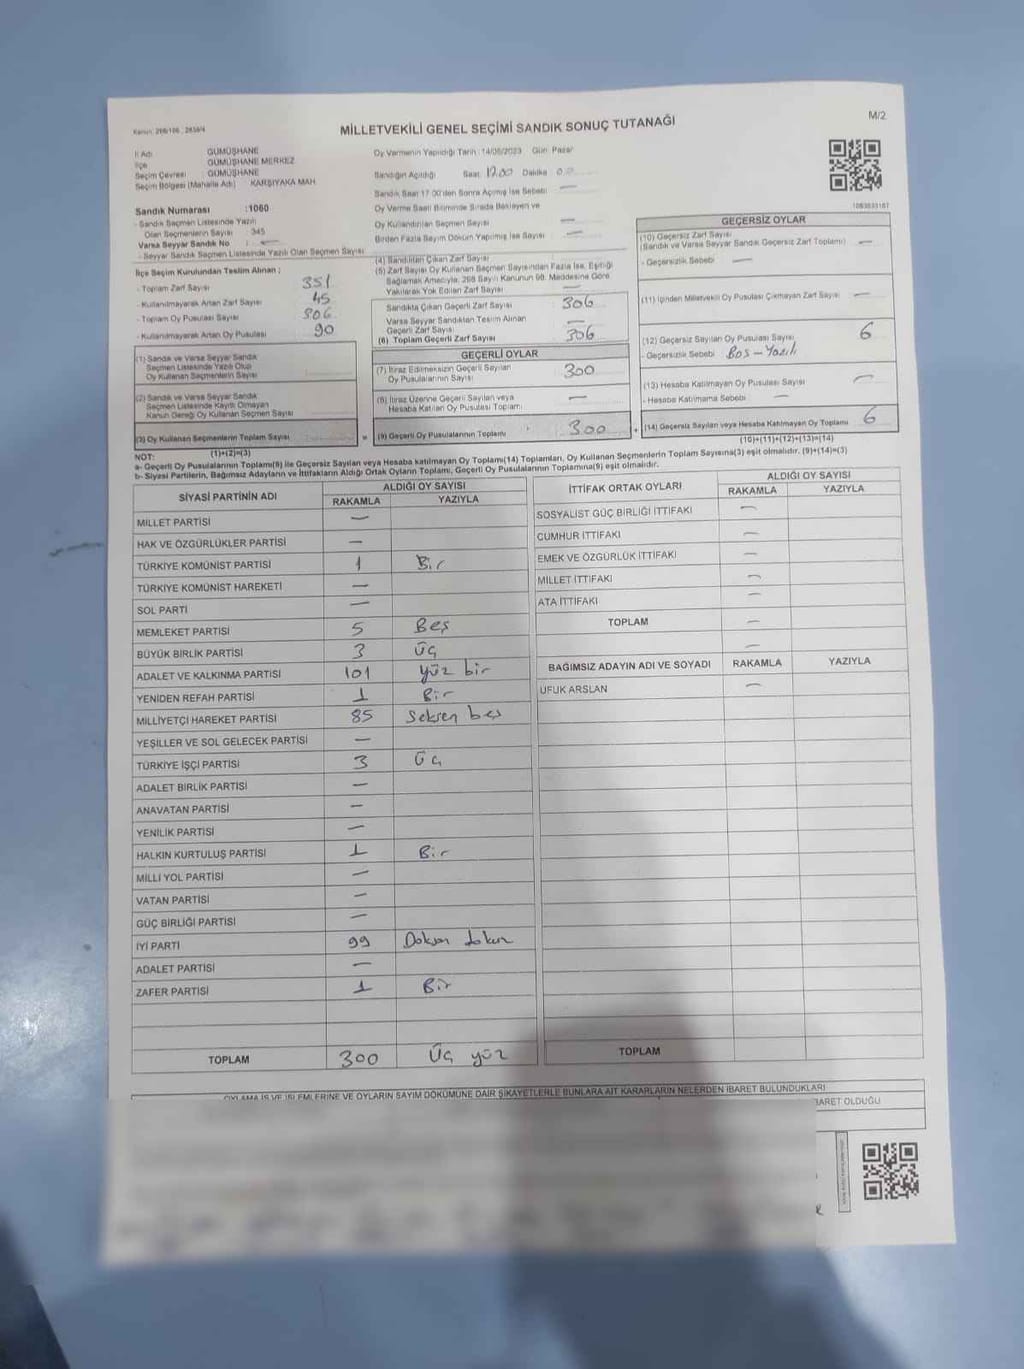 Kanun: 298/106 , 2839/4
MİLLETVEKİLİ GENEL SEÇİMİ SANDIK SONUÇ TUTANAĞI
M/2
İl Adı GÜMÜŞHANE
İlçe GÜMÜŞHANE MERKEZ
Seçim Çevresi GÜMÜŞHANE
Seçim Bölgesi (Mahalle Adı) KARŞIYAKA MAH.
Sandık Numarası :1060
- Sandık Seçmen Listesinde Yazılı
Olan Seçmenlerin Sayısı 345
Varsa Seyyar Sandık No : —
- Seyyar Sandık Seçmen Listesinde Yazılı Olan Seçmen Sayısı
İlçe Seçim Kurulundan Teslim Alınan ;
- Toplam Zarf Sayısı 351
- Kullanılmayarak Artan Zarf Sayısı 45
- Toplam Oy Pusulası Sayısı
- Kullanılmayarak Artan Oy Pusulası 90
(1) Sandık ve Varsa Seyyar Sandık
Seçmen Listesinde Yazılı Olup
Oy Kullanan Seçmenlerin Sayısı
(2) Sandık ve Varsa Seyyar Sandık
Seçmen Listesinde Kayıtlı Olmayan
Kanun Gereği Oy Kullanan Seçmen Sayısı
(3) Oy Kullanan Seçmenlerin Toplam Sayısı
(1)+(2)=(3)
Oy Vermenin Yapıldığı Tarih :14/05/2023 Gün: Pazar
Sandığın Açıldığı Saat 17.00 Dakika 00
Sandık Saat 17:00'den Sonra Açılmış İse Sebebi —
Oy Verme Saati Bitiminde Sırada Bekleyen ve
Oy Kullandırılan Seçmen Sayısı —
Birden Fazla Sayım Döküm Yapılmış İse Sayısı —
(4) Sandıktan Çıkan Zarf Sayısı
(5) Zarf Sayısı Oy Kullanan Seçmen Sayısından Fazla İse, Eşitliği
Sağlamak Amacıyla, 298 Sayılı Kanunun 98. Maddesine Göre
Yakılarak Yok Edilen Zarf Sayısı —
Sandıkta Çıkan Geçerli Zarf Sayısı 306
Varsa Seyyar Sandıktan Teslim Alınan
Geçerli Zarf Sayısı —
(6) Toplam Geçerli Zarf Sayısı 306
GEÇERLİ OYLAR
(7) İtiraz Edilmeksizin Geçerli Sayılan
Oy Pusulalarının Sayısı 300
(8) İtiraz Üzerine Geçerli Sayılan veya
Hesaba Katılan Oy Pusulası Toplamı —
= (9) Geçerli Oy Pusulalarının Toplamı 300 +
1083833187
GEÇERSİZ OYLAR
(10) Geçersiz Zarf Sayısı
(Sandık ve Varsa Seyyar Sandık Geçersiz Zarf Toplamı) —
- Geçersizlik Sebebi —
(11) İçinden Milletvekili Oy Pusulası Çıkmayan Zarf Sayısı —
(12) Geçersiz Sayılan Oy Pusulası Sayısı 6
- Geçersizlik Sebebi Boş-Yazılı
(13) Hesaba Katılmayan Oy Pusulası Sayısı —
- Hesaba Katılmama Sebebi —
(14) Geçersiz Sayılan veya Hesaba Katılmayan Oy Toplamı 6
(10)+(11)+(12)+(13)=(14)
NOT:
a- Geçerli Oy Pusulalarının Toplamı(9) ile Geçersiz Sayılan veya Hesaba katılmayan Oy Toplamı(14) Toplamları, Oy Kullanan Seçmenlerin Toplam Sayısına(3) eşit olmalıdır. (9)+(14)=(3)
b- Siyasi Partilerin, Bağımsız Adayların ve İttifakların Aldığı Ortak Oyların Toplamı, Geçerli Oy Pusulalarının Toplamına(9) eşit olmalıdır.
SİYASİ PARTİNİN ADI ALDIĞI OY SAYISI
RAKAMLA YAZIYLA
MİLLET PARTİSİ —
HAK VE ÖZGÜRLÜKLER PARTİSİ —
TÜRKİYE KOMÜNİST PARTİSİ 1 Bir
TÜRKİYE KOMÜNİST HAREKETİ —
SOL PARTİ —
MEMLEKET PARTİSİ 5 Beş
BÜYÜK BİRLİK PARTİSİ 3 Üç
ADALET VE KALKINMA PARTİSİ 101 yüz bir
YENİDEN REFAH PARTİSİ 1 Bir
MİLLİYETÇİ HAREKET PARTİSİ 85 Seksen beş
YEŞİLLER VE SOL GELECEK PARTİSİ —
TÜRKİYE İŞÇİ PARTİSİ 3 Üç
ADALET BİRLİK PARTİSİ —
ANAVATAN PARTİSİ —
YENİLİK PARTİSİ —
HALKIN KURTULUŞ PARTİSİ 1 Bir
MİLLİ YOL PARTİSİ —
VATAN PARTİSİ —
GÜÇ BİRLİĞİ PARTİSİ —
İYİ PARTİ 99 Doksan dokuz
ADALET PARTİSİ —
ZAFER PARTİSİ 1 Bir
TOPLAM 300 Üç yüz
İTTİFAK ORTAK OYLARI ALDIĞI OY SAYISI
RAKAMLA YAZIYLA
SOSYALİST GÜÇ BİRLİĞİ İTTİFAKI —
CUMHUR İTTİFAKI —
EMEK VE ÖZGÜRLÜK İTTİFAKI —
MİLLET İTTİFAKI —
ATA İTTİFAKI —
TOPLAM —
—
BAĞIMSIZ ADAYIN ADI VE SOYADI RAKAMLA YAZIYLA
UFUK ARSLAN —
TOPLAM
OYLAMA İŞ VE İŞLEMLERİNE VE OYLARIN SAYIM DÖKÜMÜNE DAİR ŞİKAYETLERLE BUNLARA AİT KARARLARIN NELERDEN İBARET BULUNDUKLARI
BARET OLDUĞU